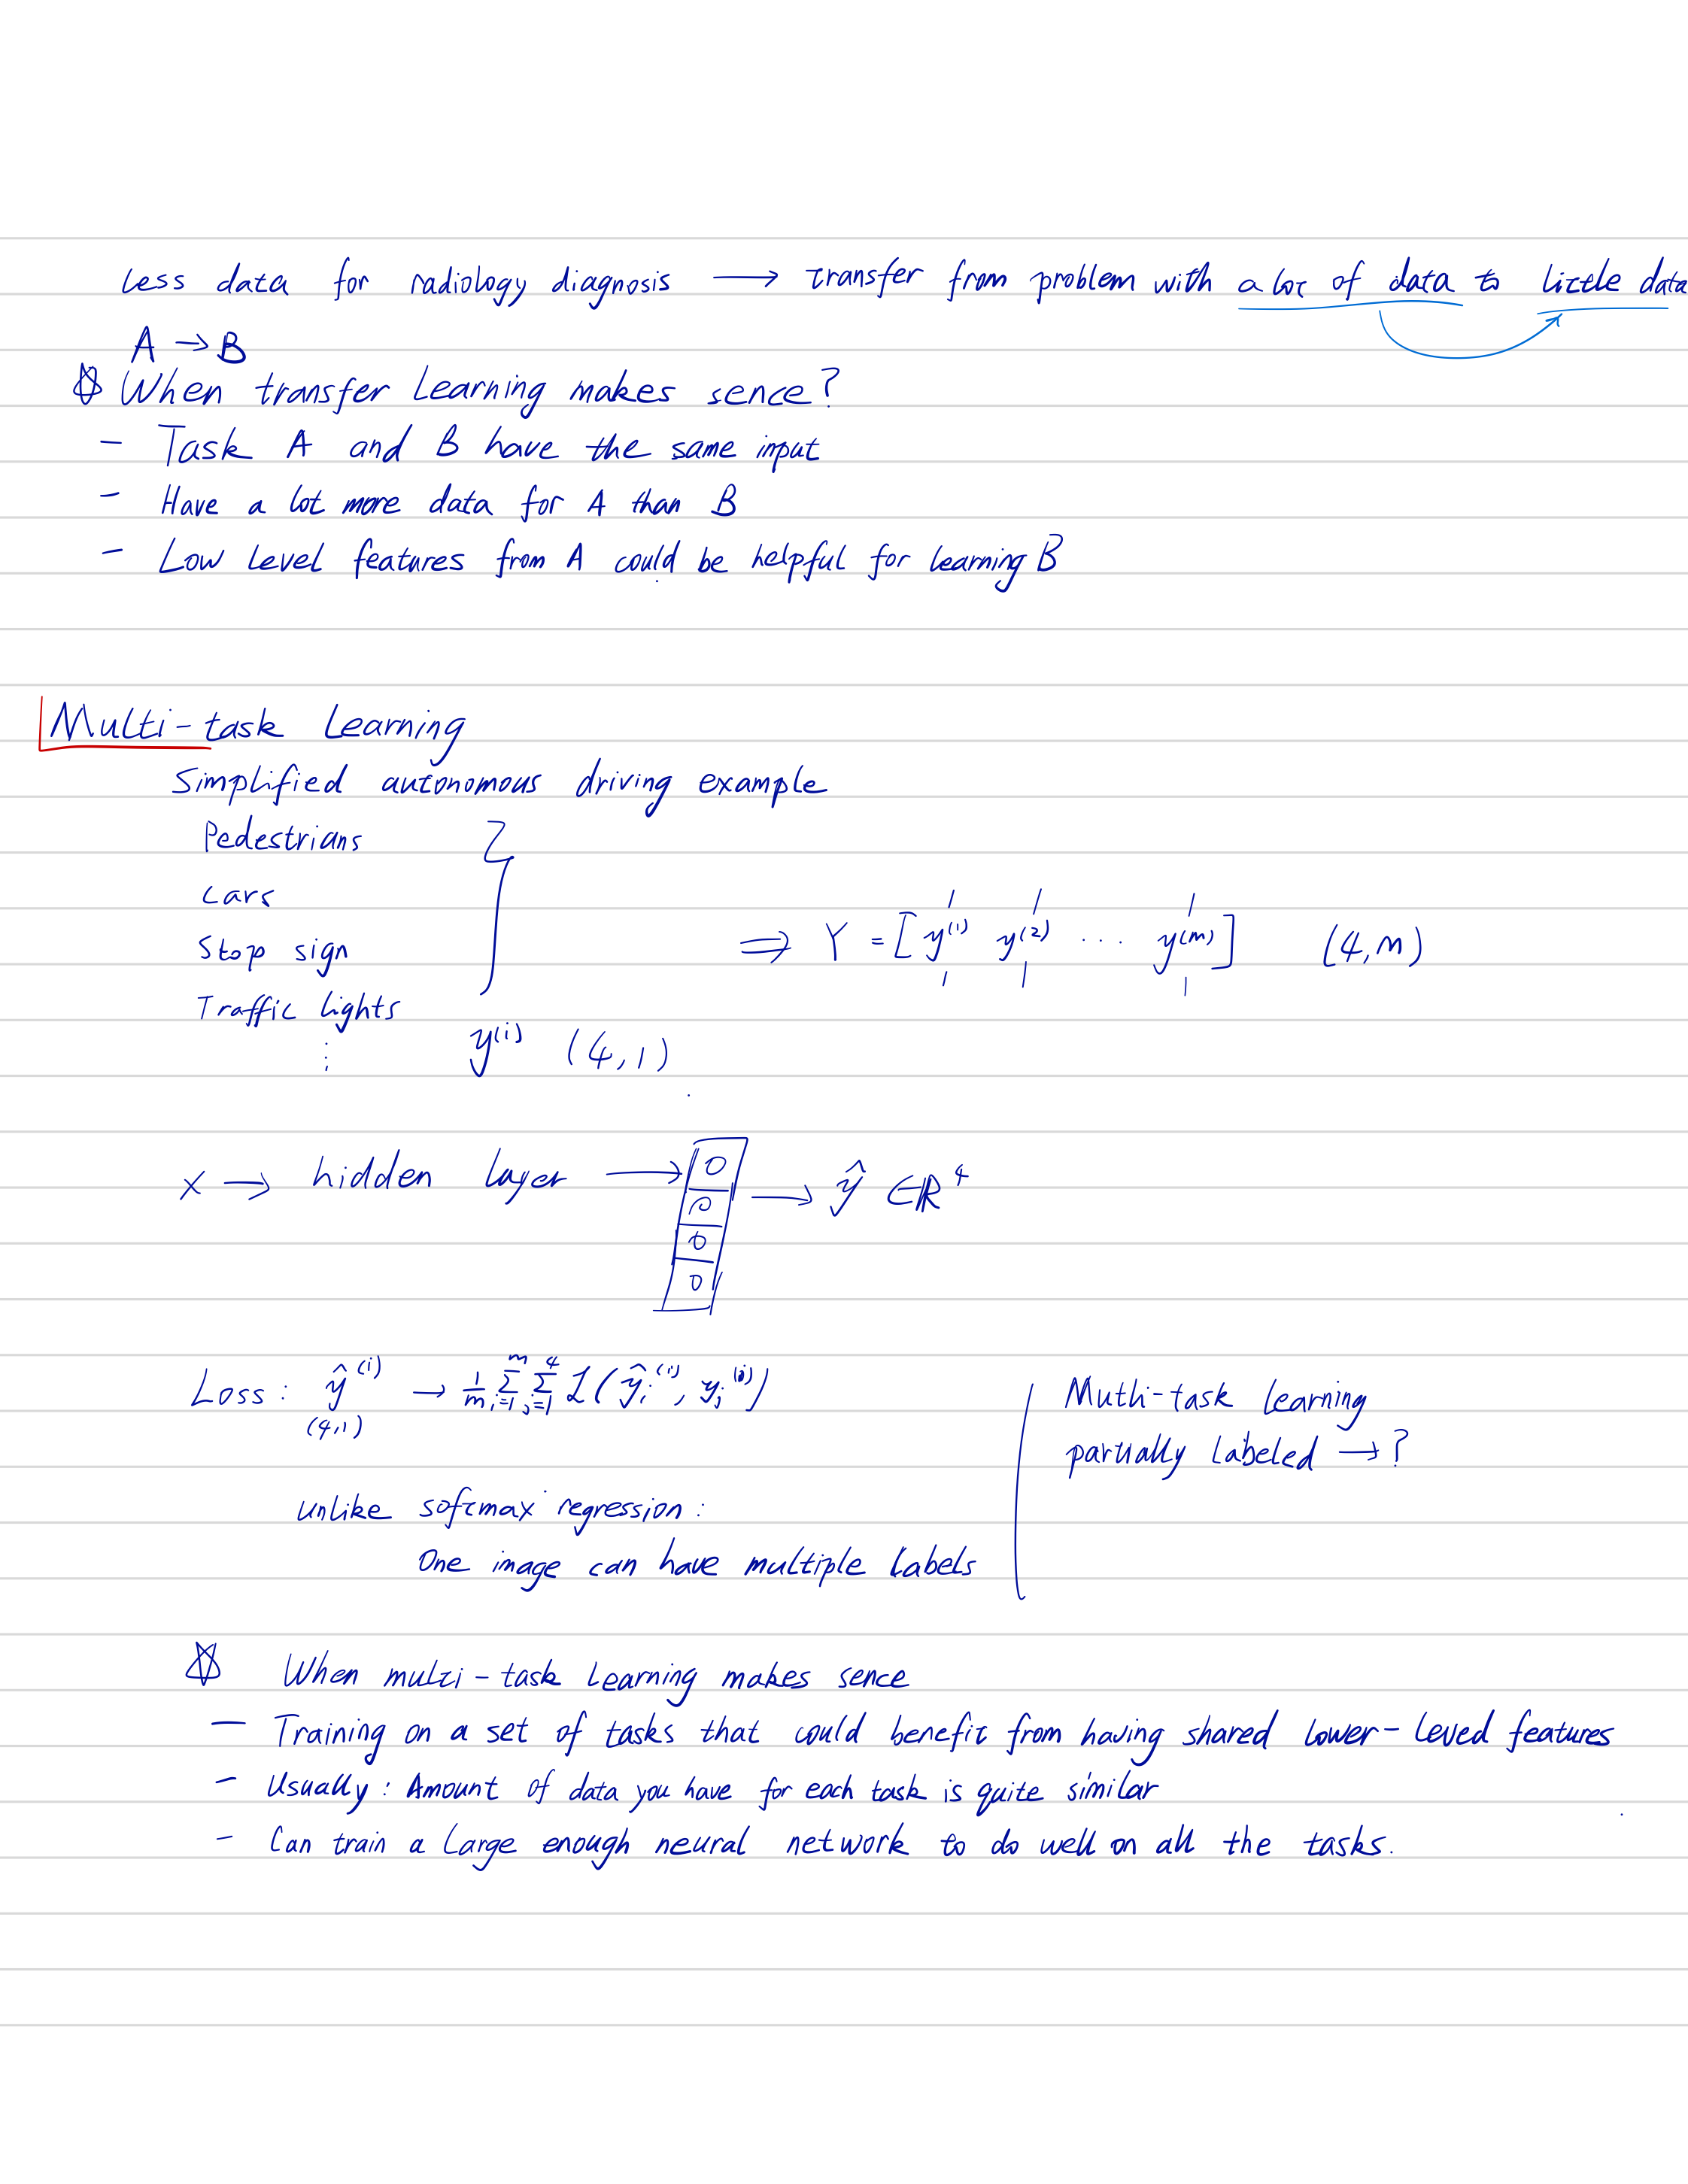 Less data for radiology diagnosis → transfer from problem with a lot of data to little data
A → B
☆ When transfer Learning makes sence?
- Task A and B have the same input
- Have a lot more data for A than B
- Low Level features from A could be helpful for learning B
Multi-task Learning
Simplified autonomous driving example
Pedestrians
Cars
Stop sign
Traffic lights
⋮
⇒ Y = [y⁽¹⁾ y⁽²⁾ ... y⁽ᵐ⁾] (4,m)
y⁽ⁱ⁾ (4,1)
x → hidden layer → ŷ ∈ ℝ⁴
Loss: ŷ⁽ⁱ⁾ (4,1) → 1/m Σᵢ₌₁ᵐ Σⱼ₌₁⁴ L(ŷᵢ⁽ⁱ⁾, yⱼ⁽ⁱ⁾)
unlike softmax regression:
One image can have multiple Labels
Muthi-task learning
partially Labeled → ?
☆ When multi-task Learning makes sence
- Training on a set of tasks that could benefit from having shared lower-leved features
- Usually: Amount of data you have for each task is quite similar
- Can train a Large enough neural network to do well on all the tasks.